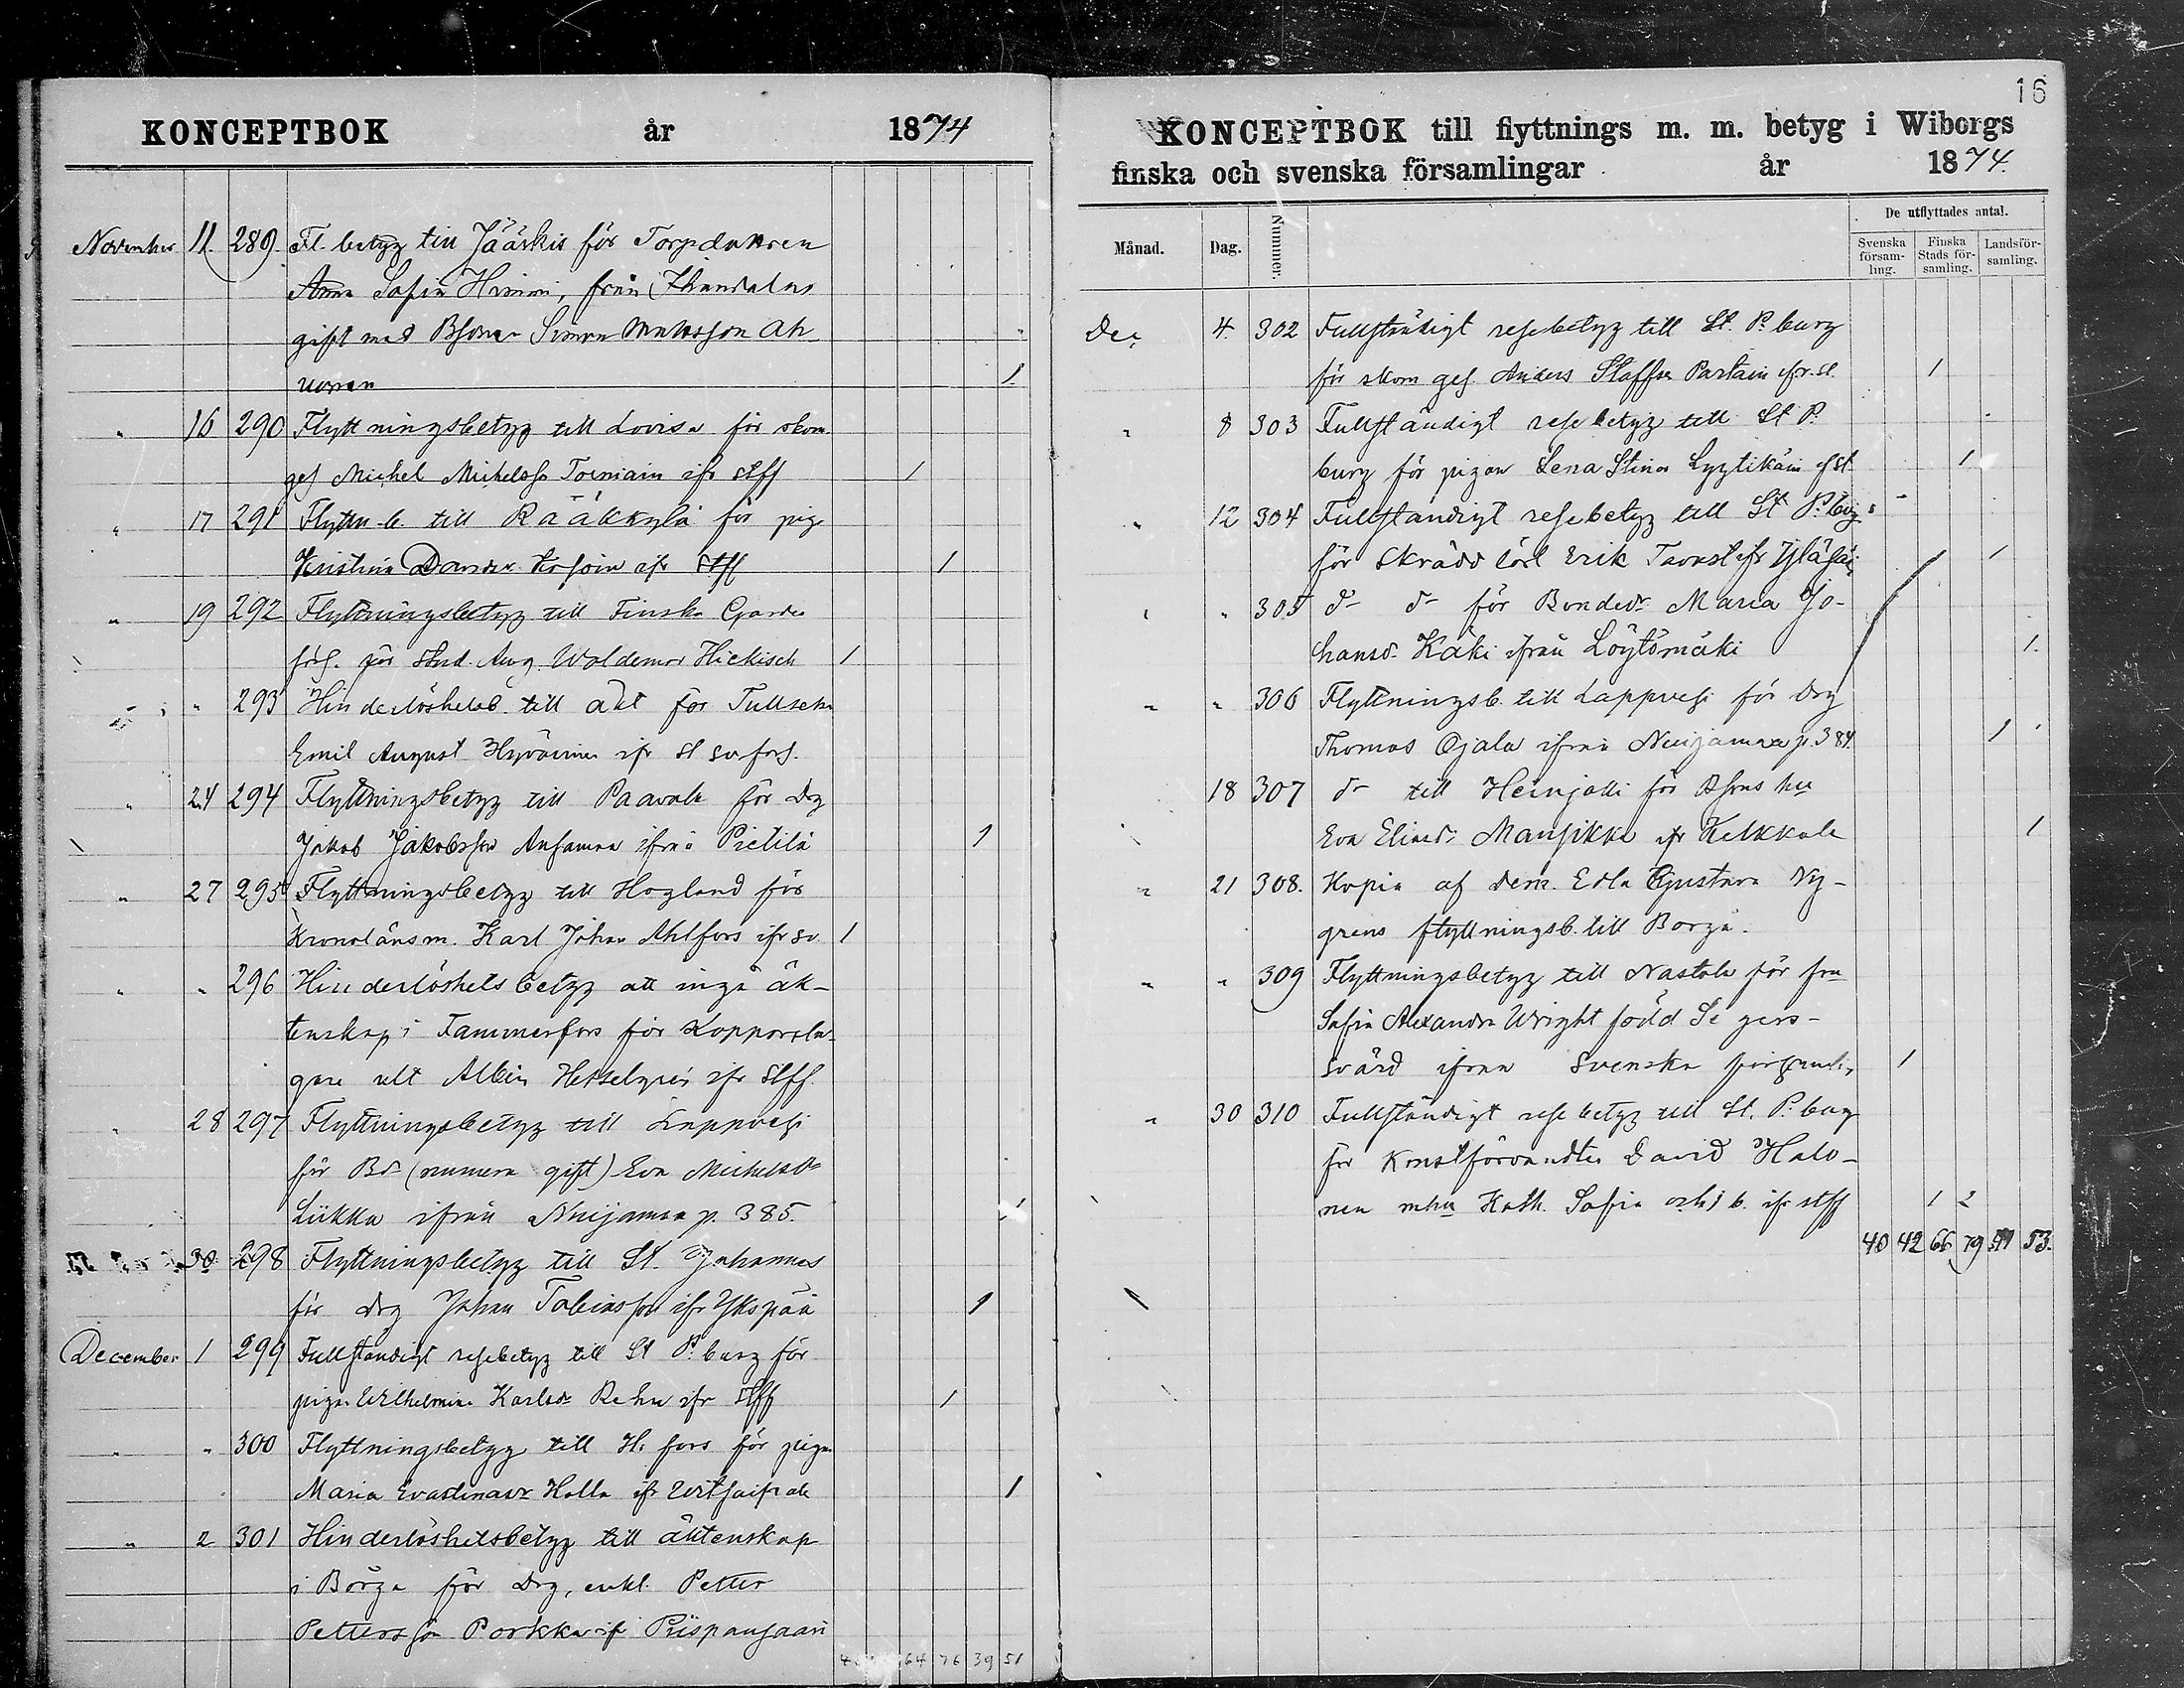 KONCEPTBOK år 1874
November 11. 289. Fl. betyg till Jääskis för Torpdottren
Anna Sofia Himmi, från
gift med Bsonen Simon Mattsson
1.
" 16 290 Flyttningsbetyg till Lovisa för skom.
ges Michel Michelss Toiviain ifr Stff 1
" 17 291 Flyttn.b. till Rääkkylä för pig.
Kristina Kosoin ifr Stff 1
" 19 292 Flyttningsbetyg till Finska Gardes
förs. för Stud. Aug. Woldemar Hickisch 1
" " 293 Hinderlöshetsb. till äkt för
Emil August ifr st sv förs.
" 24 294 Flyttningsbetyg till Paavola för drg
Jakob Jakobsson ifrån Pietilä 1
" 27 295 Flyttningsbetyg till Hogland för
Kronolänsm. Karl Johan Ahlfors ifr sv. 1
" " 296 Hinderlöshetsbetyg att ingå äk-
tenskap i Tammerfors för Kopparsla-
gare Albin ifr Stff.
" 28 297 Flyttningsbetyg till Lappvesi
för Bd (numera gift) Eva Michelsdr
Liikka ifrån Nuijamaa p. 385. 1
30 298 Flyttningsbetyg till St. Johannes
för drg Johan Tobiasson ifr Ykspää 1
December 1 299 Fullständigt resebetyg till St P:burg för
pigan Wilhelmina Karlsdr Rehn ifr Stff 1
" " 300 Flyttningsbetyg till H:fors för pigan
Maria Halla ifr 1
" 2 301 Hinderlöshetsbetyg till äktenskap
i Borgå för drg, enkl. Petter
Pettersson Porkka ifr Piispansaari
64 76 39 51
16
KONCEPTBOK till flyttnings m. m. betyg i Wiborgs
finska och svenska församlingar år 1874.
Månad. Dag. Nummer. De utflyttades antal.
Svenska försam- ling. Finska Stads för- samling. Landsför- samling.
Dec 4. 302 Fullständigt resebetyg till St. P:burg
för skom ges. Anders Staffss Partain ifr. st. 1
" 8 303 Fullständigt resebetyg till St P:
burg för pigan Lena Stina Lyytikäin ifr st 1
" 12 304 Fullständigt resebetyg till St P:brg
för Skrädd lärl Erik Tavast ifr 1
" " 305 d:o d:o för Bondedr Maria Jo-
hansdr Käki ifrån Löytömäki 1.
" " 306 Flyttningsb. till Lappvesi för drg
Thomas Ojala ifrån Nuijamaa p. 384. 1
18 307 d:o till Heinjoki för Bsons hu
Eva Eliaedr Mansikka ifr Kelkkala 1
" 21 308. Kopia af Dem. Edla Gustava Ny-
grens flyttningsb. till Borgå.
" " 309 Flyttningsbetyg till Nastola för fru
Sofia Alexandra Wright född Segers-
svärd ifrån Svenska församl. 1
" 30 310 Fullständigt resebetyg till St. P:burg
för Konstförvandten David Halo-
nen mhu Kath. Sofia och 1 b. ifr stff 1 2
40 42 66 79 53.